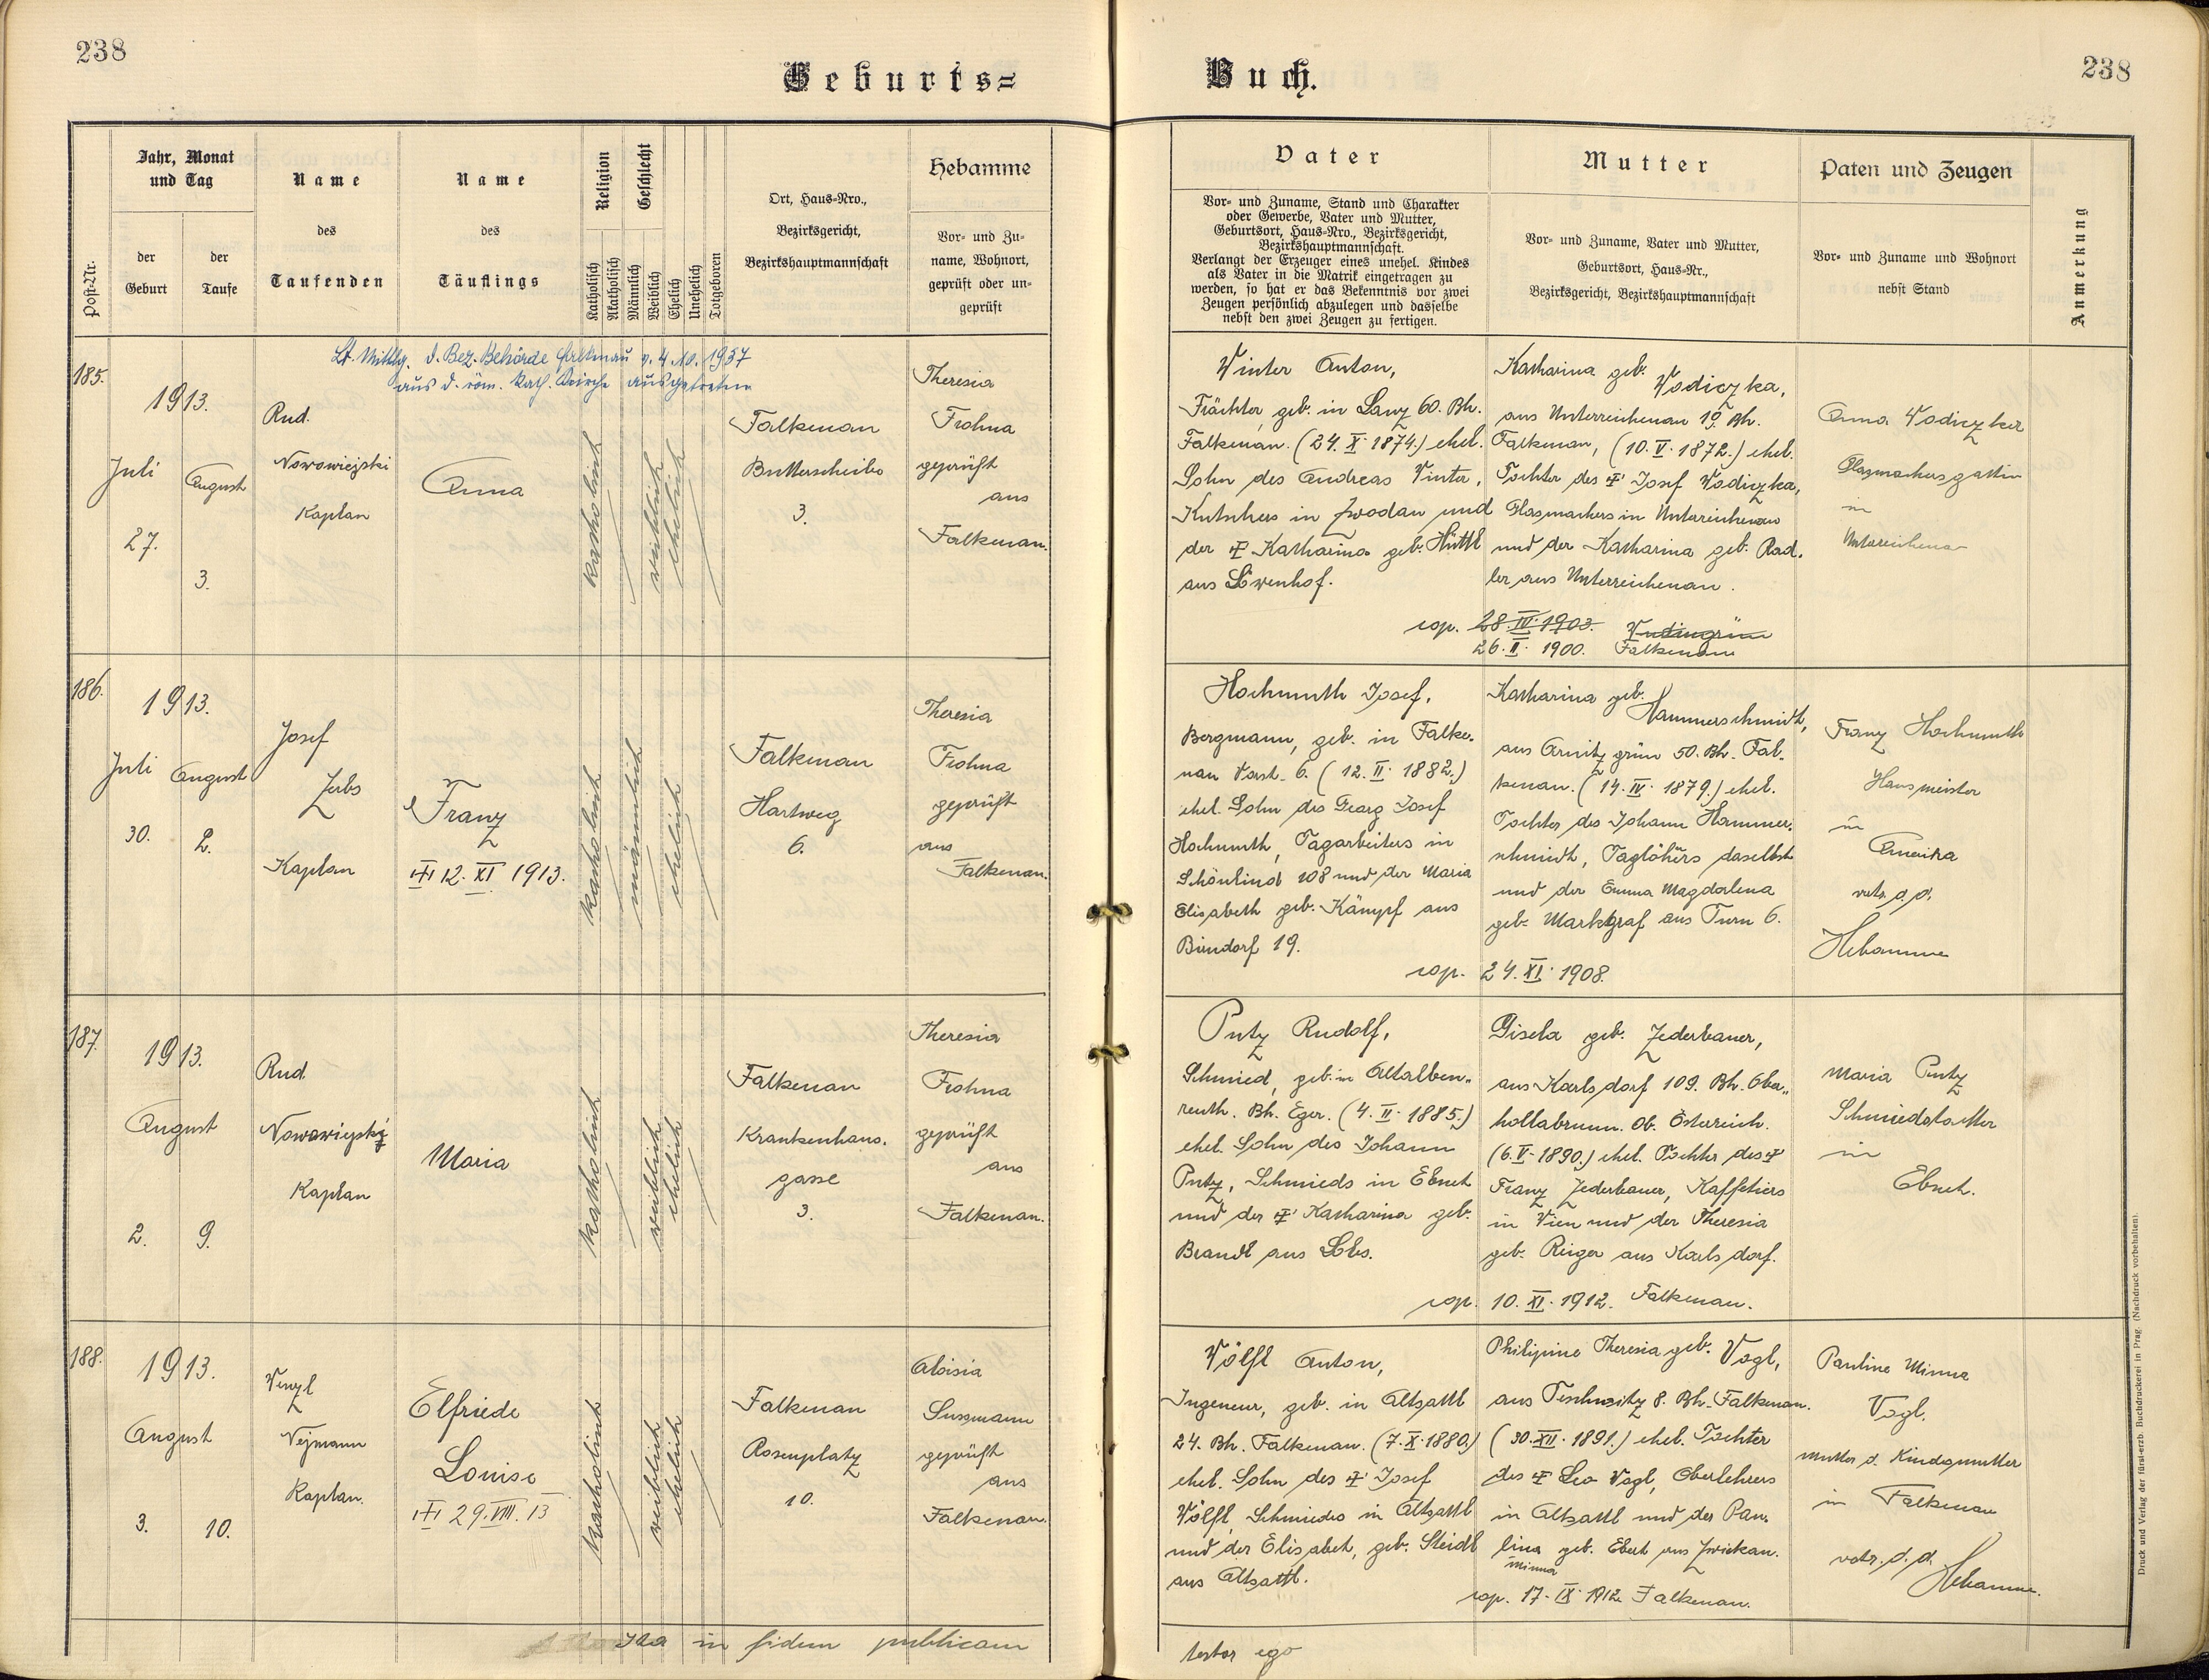 238
Geburts=
Jahr, Monat
und Tag
der
Geburt
der
Taufe
Post-Nr.
Name
des
Taufenden
Name
des
Täuflings
Religion
Katholisch
Akatholisch
Geschlecht
Männlich
Weiblich
Ehelich
Unehelich
Totgeboren
Ort, Haus=Nro.,
Bezirksgericht,
Bezirkshauptmannschaft
Hebamme
Vor= und Zu=
name, Wohnort,
geprüft oder un=
geprüft
Lt. Mittlg. d. Bez. Behörde Falkenau v. 4.10. 1957
aus d. röm. kath. Kirche ausgetreten
185.
1913.
Juli
27.
August
3.
Rud.
Nowowiejski
Kaplan
Anna
katholisch
weiblich
ehelich
Falkenau
Butterscheibe
3.
Theresia
Frohna
geprüft
aus
Falkenau.
186.
1913.
Juli
30.
August
2.
Josef
Zerbs
Kaplan
Franz
12. XI 1913.
katholisch
männlich
ehelich
Falkenau
Hartweg
6.
Theresia
Frohna
geprüft
aus
Falkenau.
187.
1913.
August
2.
9.
Rud.
Nowowiejski
Kaplan
Maria
katholisch
weiblich
ehelich
Falkenau
Krankenhaus.
gasse
3.
Theresia
Frohna
geprüft
aus
Falkenau.
188.
1913.
August
3.
10.
Wenzl
Nejmann
Kaplan.
Elfriede
Louise
29. VIII. 13
katholisch
weiblich
ehelich
Falkenau
Rosenplatz
10.
Aloisia
Sussmann
geprüft
aus
Falkenau.
Ita in fidem publicam
238
Buch.
Vater
Vor= und Zuname, Stand und Charakter
oder Gewerbe, Vater und Mutter,
Geburtsort, Haus=Nro., Bezirksgericht,
Bezirkshauptmannschaft.
Verlangt der Erzeuger eines unehel. Kindes
als Vater in die Matrik eingetragen zu
werden, so hat er das Bekenntnis vor zwei
Zeugen persönlich abzulegen und dasselbe
nebst den zwei Zeugen zu fertigen.
Mutter
Vor= und Zuname, Vater und Mutter,
Geburtsort, Haus=Nr.,
Bezirksgericht, Bezirkshauptmannschaft
Paten und Zeugen
Vor= und Zuname und Wohnort
nebst Stand
Anmerkung
Winter Anton,
Frächter, geb. in Lanz 60. Bh.
Falkenau. (24. X. 1874.) ehel.
Sohn des Andreas Winter,
Kutschers in Zwodau und
der Katharina geb. Hüttl
aus Löwenhof.
Katharina geb. Wodiczka,
aus Unterreichenau 19. Bh.
Falkenau, (10. V. 1872.) ehel.
Tochter des Josef Wodiczka,
Glasmachers in Unterreichenau
und der Katharina geb. Rad.
ler aus Unterreichenau.
cop. 28. IV. 1903.
26. II. 1900. Falkenau
Anna Wodiczka
Glasmachersgattin
in
Unterreichenau
Hochmuth Josef,
Bergmann, geb. in Falke.
nau Vorst. 6. (12. II. 1882.)
ehel. Sohn des Georg Josef
Hochmuth, Tagarbeiters in
Schönlind 108 und der Maria
Elisabeth geb. Kämpf aus
Birndorf 19.
Katharina geb. Hammerschmidt,
aus Arnitzgrün 50. Bh. Fal.
kenau. (14. IV. 1879.) ehel.
Tochter des Johann Hammer.
schmidt, Taglöhners daselbst
und der Emma Magdalena
geb. Markgraf aus Turn 6.
cop. 24. XI. 1908.
Franz Hochmuth
Hausmeister
in
Amerika
vertr. d. d.
Hebamme
Putz Rudolf,
Schmied, geb. in Altalben„
reuth. Bh. Eger. (4. II. 1885.)
ehel. Sohn des Johann
Putz, Schmieds in Ebnet
und der Katharina geb.
Brandl aus Lbs.
Gisela geb. Zederbauer,
aus Karlsdorf 109. Bh. Ober„
hollabrunn. Ob. Österreich.
(6. V. 1890.) ehel. Tochter des
Franz Zederbauer, Kaffetiers
in Wien und der Theresia
geb. Ringer aus Karlsdorf.
cop. 10. XI. 1912. Falkenau.
Maria Putz
Schmiedstochter
in
Ebnet.
Wölfl Anton,
Ingeneur, geb. in Altsattl
24. Bh. Falkenau. (7. X. 1880.)
ehel. Sohn des Josef
Wölfl, Schmiedes in Altsattl
und der Elisabet, geb. Steidl
aus Altsattl.
Philipine Theresia geb. Vogl,
aus Teschwitz 8. Bh. Falkenau.
(30. XII. 1891.) ehel. Tochter
des Leo Vogl, Oberlehrers
in Altsattl und der Pau.
lina geb. Ebert aus Zwickau.
Minna
cop. 17. IX. 1912. Falkenau.
Pauline Minna
Vogl.
Mutter d. Kindsmutter
in Falkenau
vertr. d. d.
Hebamme.
testor ego
Druck und Verlag der fürst-erzb. Buchdruckerei in Prag. (Nachdruck vorbehalten).